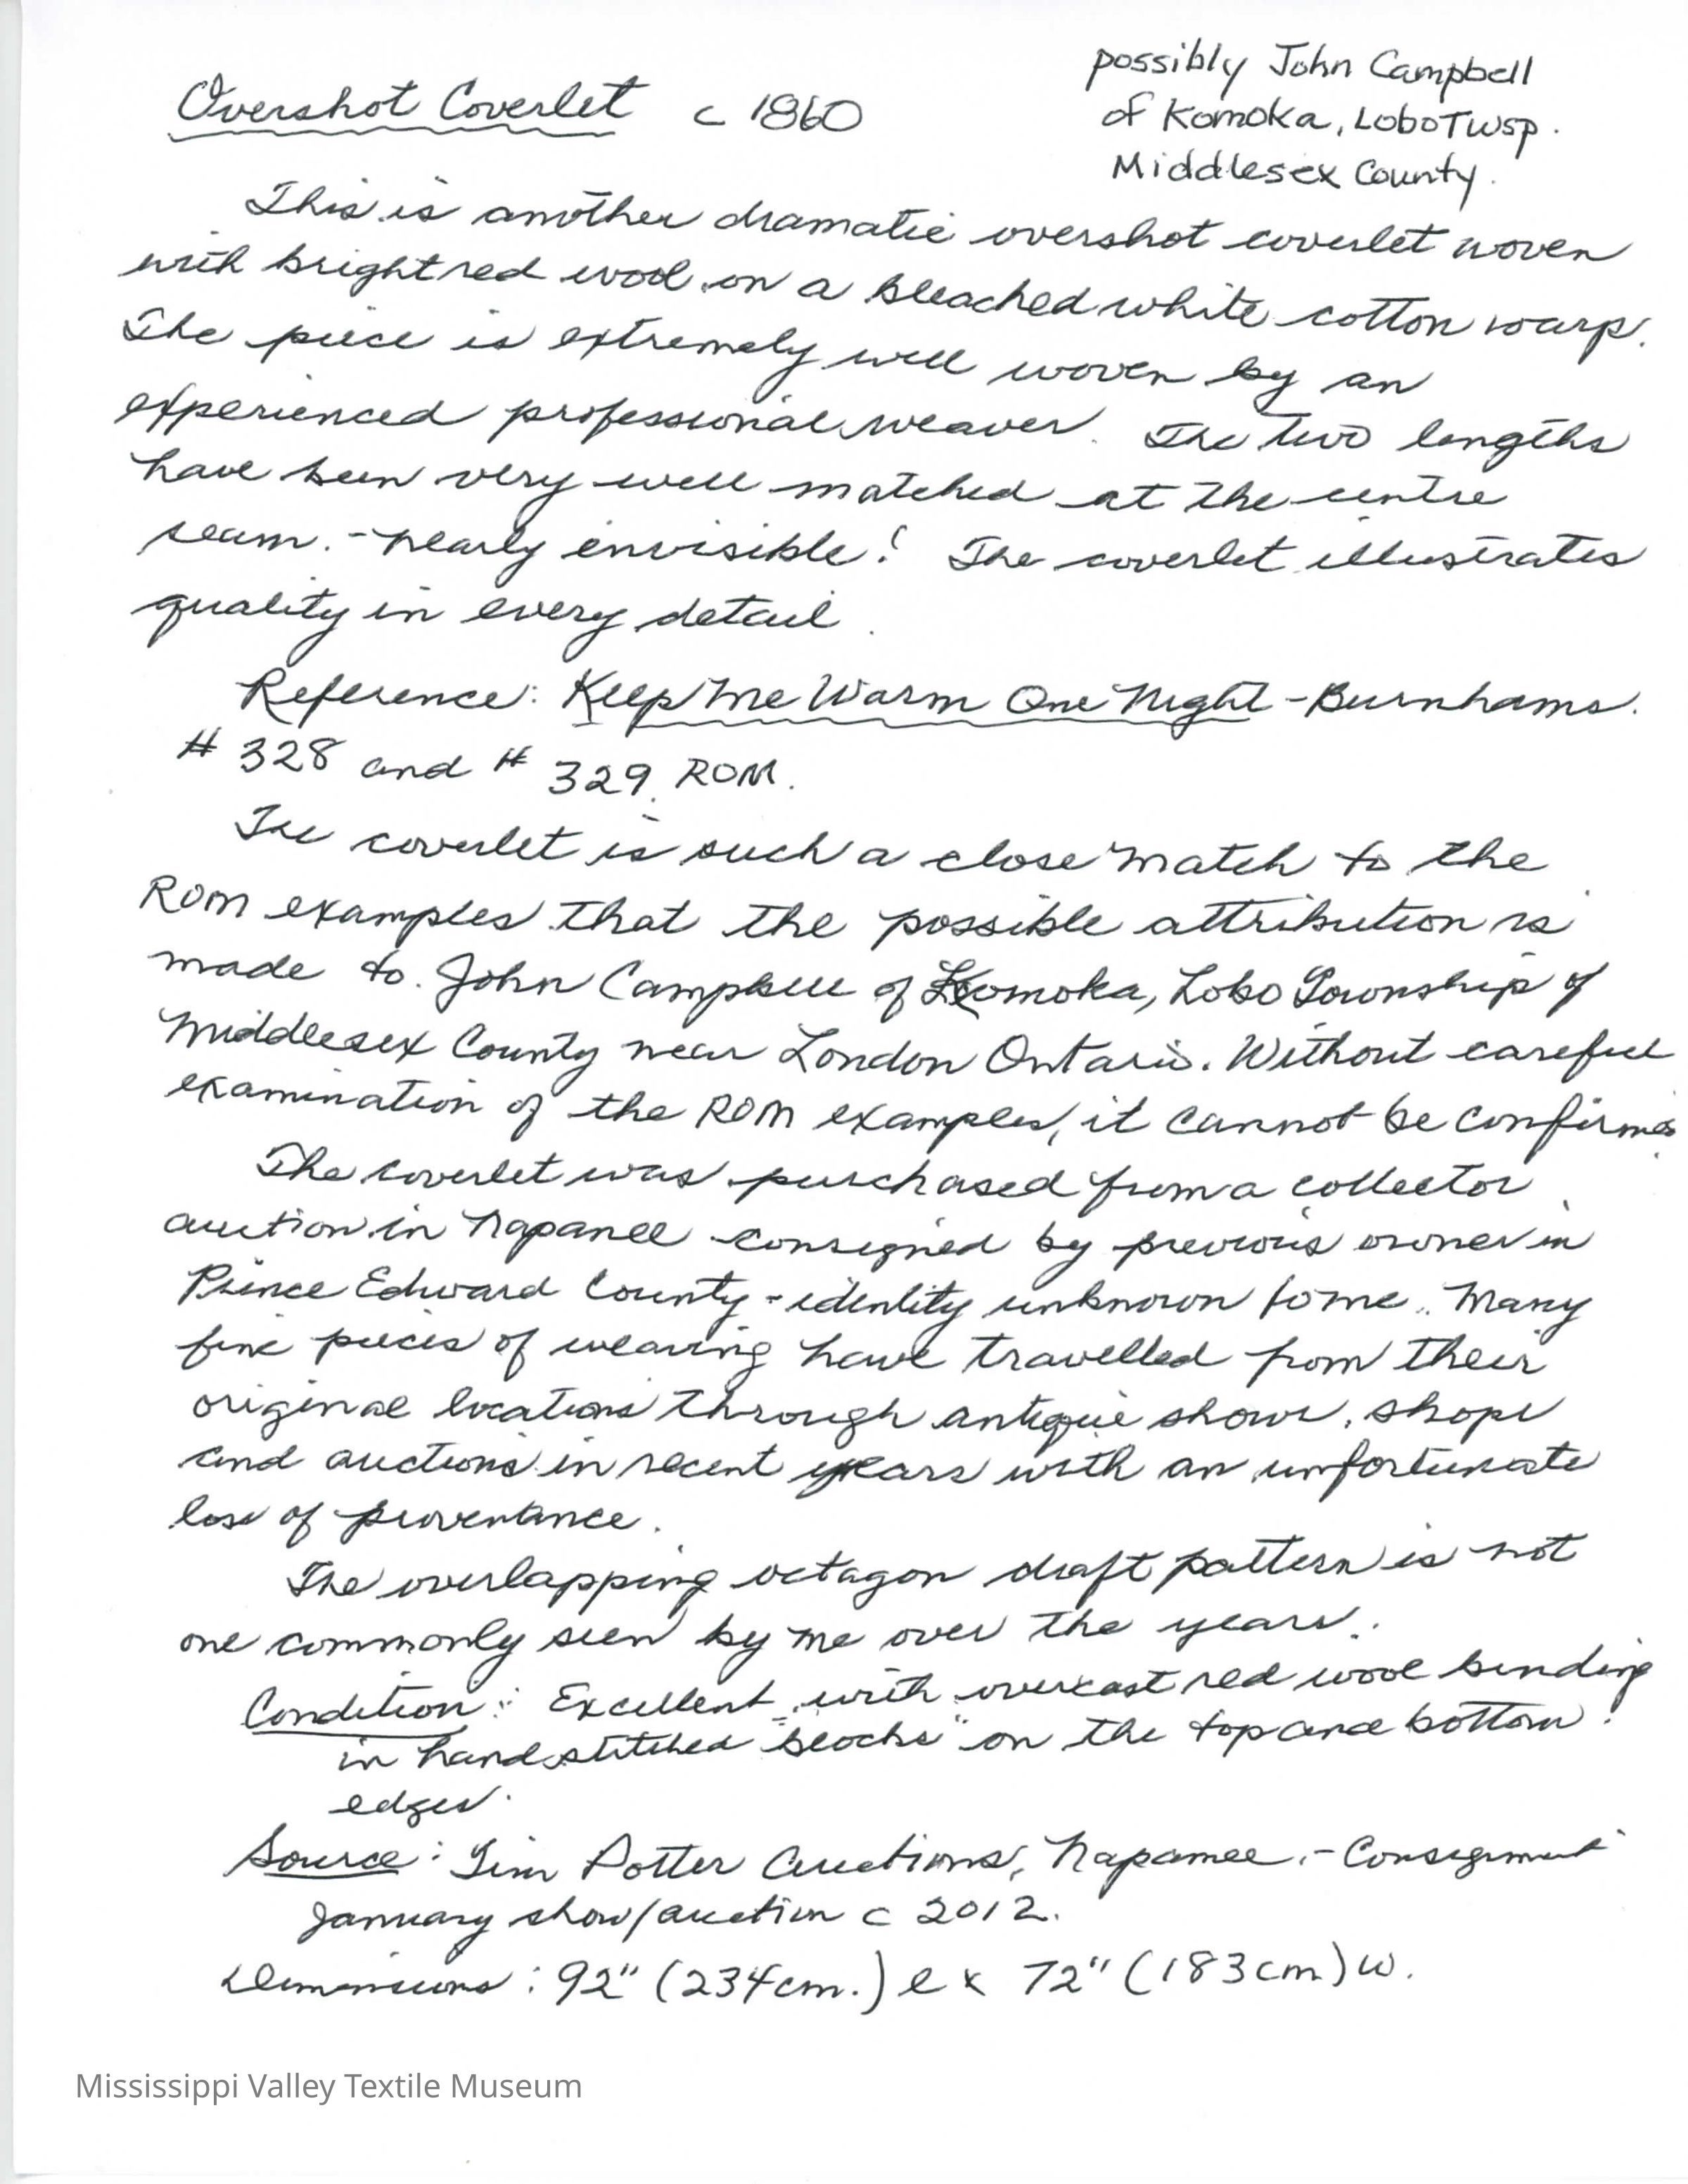 Overshot Coverlet c 1860
possibly John Campbell
of Komoka, Lobo Twsp.
Middlesex County.
This is another dramatic overshot coverlet woven
with bright red wool on a bleached white cotton warp.
The piece is extremely well woven by an
experienced professional weaver. The two lengths
have been very well matched at the centre
seam. - nearly envisible! The coverlet illustrates
quality in every detail.
Reference: Keep Me Warm One Night - Burnhams.
# 328 and # 329. ROM.
The coverlet is such a close match to the
ROM examples that the possible attribution is
made to John Campbell of Komoka, Lobo Township of
Middlesex County near London Ontario. Without careful
examination of the ROM examples, it cannot be confirmed.
The coverlet was purchased from a collector
auction in Napanee consigned by previous owner in
Prince Edward County - identity unknown to me. Many
fine pieces of weaving have travelled from their
original locations through antique shows, shops
and auctions in recent years with an unfortunate
loss of provenance.
The overlapping octagon draft pattern is not
one commonly seen by me over the years.
Condition: Excellent with overcast red wool binding
in hand stitched "blocks" on the top and bottom
edges.
Source: Jim Potter Auctions, Napanee. - Consignment
January show/auction c 2012.
Dimensions: 92" (234cm.) l x 72" (183cm) w.
Mississippi Valley Textile Museum